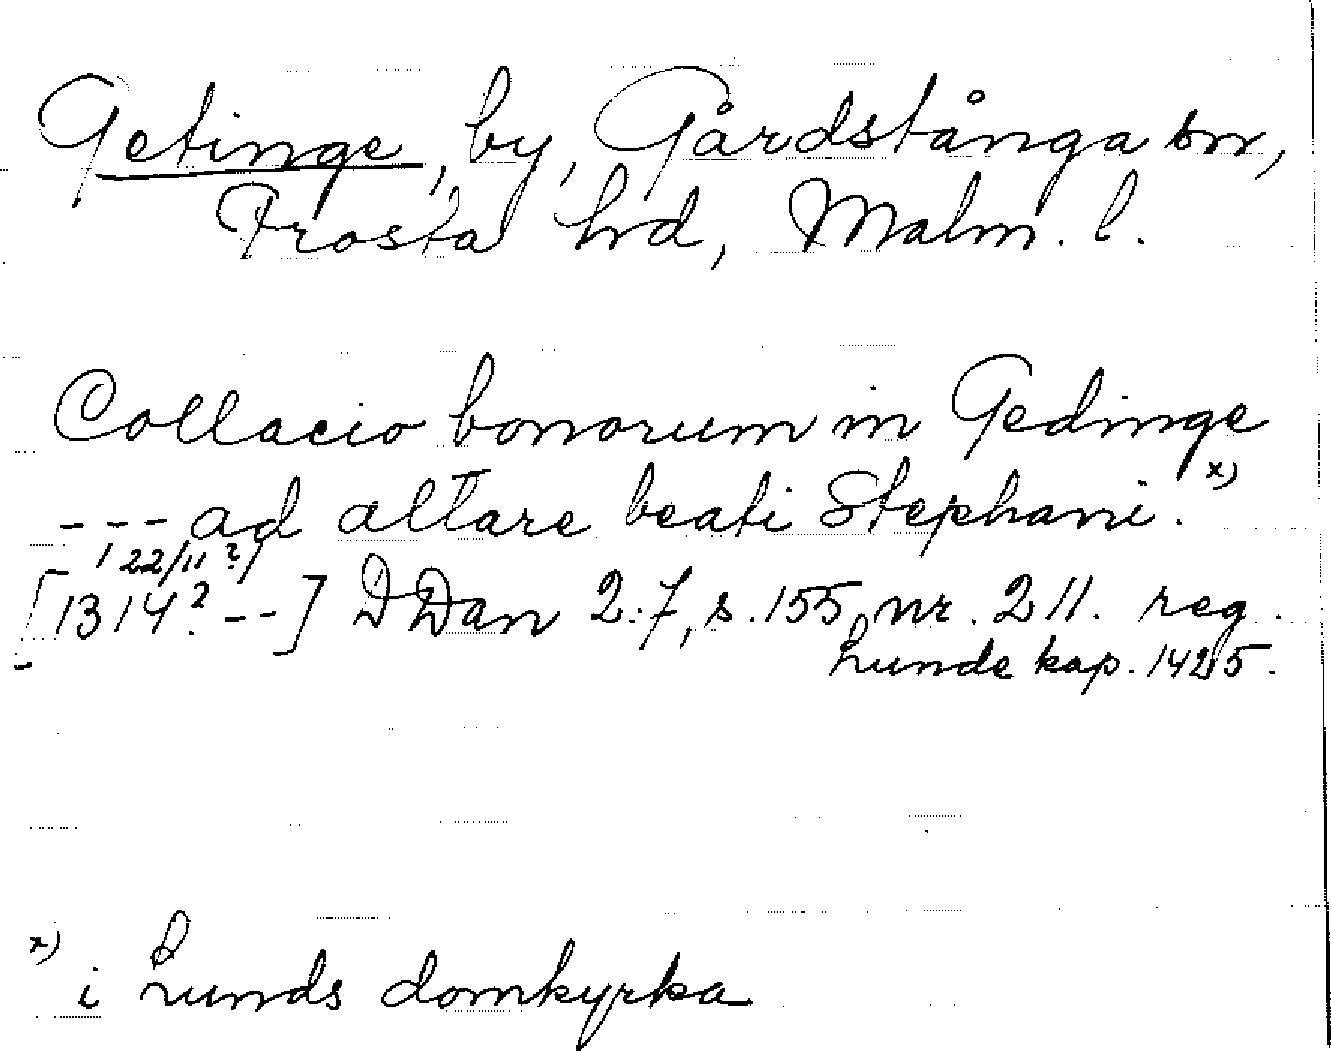 Getinge, by, Gårdstånga sn,
Frosta hd, Malm. l.
Collacio bonorum in Gedinge
--- ad altare beati Stephani. x)
/22/11?/
[1314? --] DDan 2:7, s. 155, nr. 211. reg.
Lunde kap. 1425.
x) i Lunds domkyrka